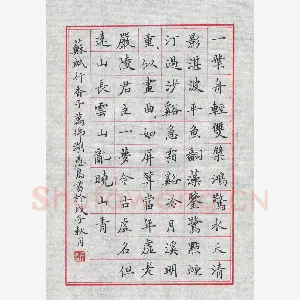 一葉舟輕雙槳鴻驚水天清
影湛波平魚翻藻鑒鷺點煙
汀過沙谿急霜谿冷月溪明
重、似畫曲、如屏算當年虛老
嚴陵君主一夢今古虛名但
遠山長雲山亂曉山青
蘇軾行香子 書於戊子秋月